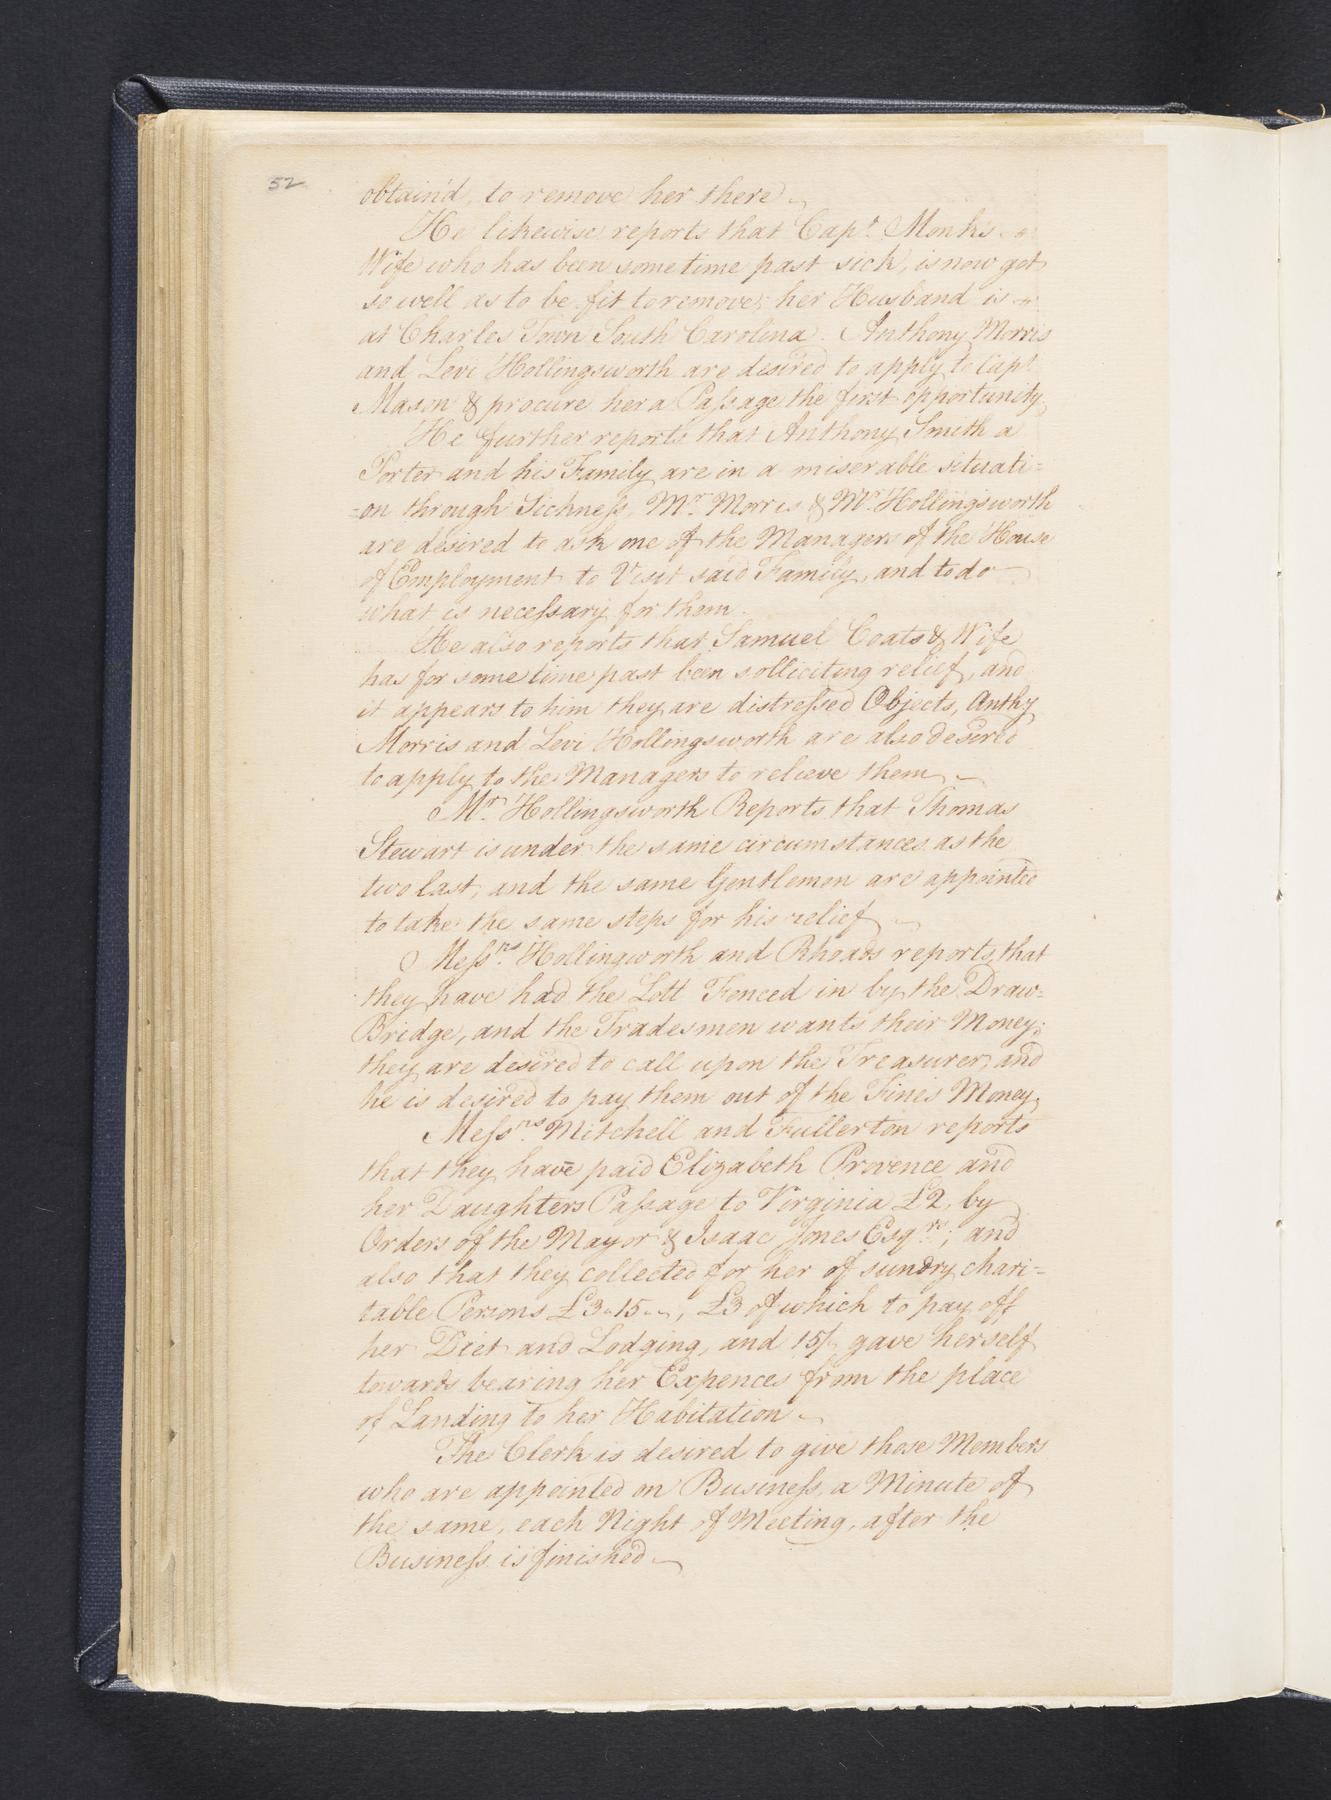 52
obtain'd, to remove her there
He likewise reports that Capt. Monk's
Wife who has been some time past sick, is now got
so well as to be fit to remove, her Husband is
at Charles Town South Carolina. Anthony Morris
and Levi Hollingsworth are desired to apply to Capt.
Mason & procure her a Paſsage the first opportunity.
He further reports that Anthony Smith a
Porter and his Family are in a miserable situati=
=on through Sickneſs, Mr. Morris & Mr. Hollingsworth
are desired to ask one of the Managers of the House
of Employment to Visit said Family, and to do
what is neceſsary for them.
He also reports that Samuel Coats & Wife
has for some time past been solliciting relief, and
it appears to him they are distreſsed Objects, Anthy.
Morris and Levi Hollingsworth are also desired
to apply to the Managers to relieve them
Mr. Hollingsworth Reports that Thomas
Stewart is under the same circumstances as the
two last, and the same Gentlemen are appointed
to take the same steps for his relief
Meſsrs. Hollingworth and Rhoads reports that
they have had the Lott Fenced in by the Draw=
Bridge, and the Tradesmen wants their Money;
they are desired to call upon the Treasurer, and
he is desired to pay them out of the Fines Money.
Meſsrs. Mitchell and Fullerton reports
that they have paid Elizabeth Provence and
her Daughters Paſsage to Virginia £2, by
Orders of the Mayor & Isaac Jones Esqrs; and
also that they collected for her of sundry chari=
table Persons £3.15.., £3 of which to pay off
her Diet and Lodging, and 15/ gave herself
towards bearing her Expences from the place
of Landing to her Habitation
The Clerk is desired to give those Members
who are appointed on Buſineſs, a Minute of
the same, each Night of Meeting, after the
Busineſs is finished